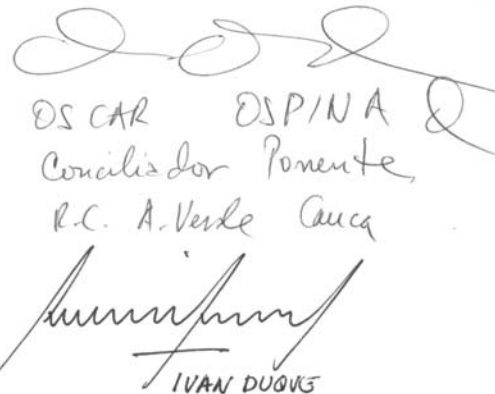 OSCAR OSPINA
Conciliador Ponente
R.C. A. Verde Cauca
IVAN DUQUE